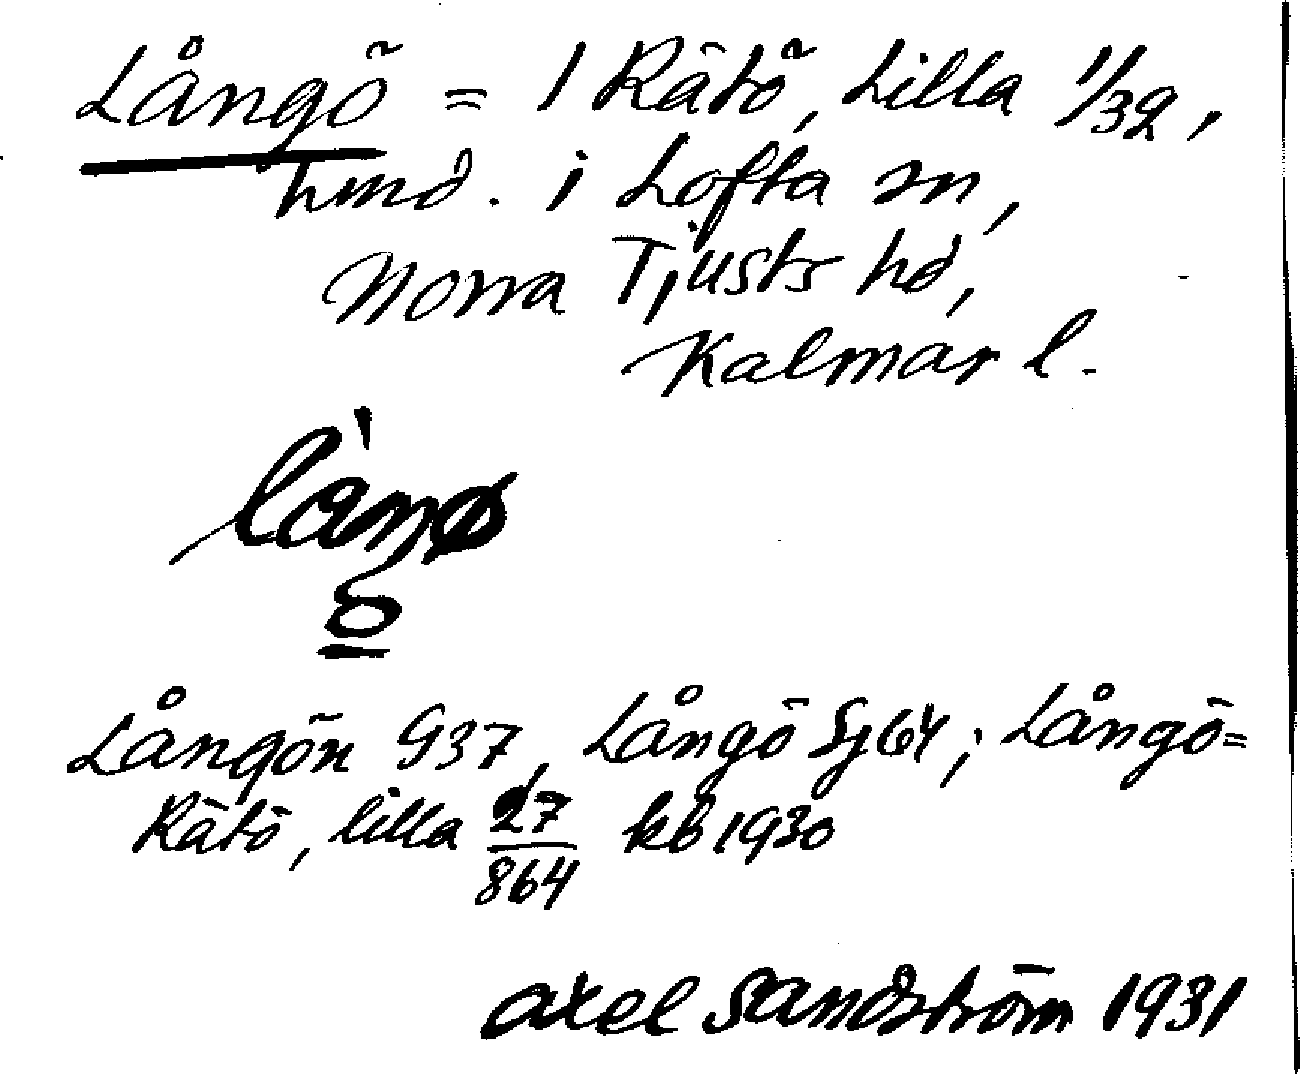 Långö = 1 Rätö, Lilla 1/32,
hmd. i Lofta sn,
Norra Tjusts hd,
Kalmar l.
Långön G37, Långö Sj64; Långö=
Rätö, lilla 27/864 kb 1930
Axel Sandström 1931